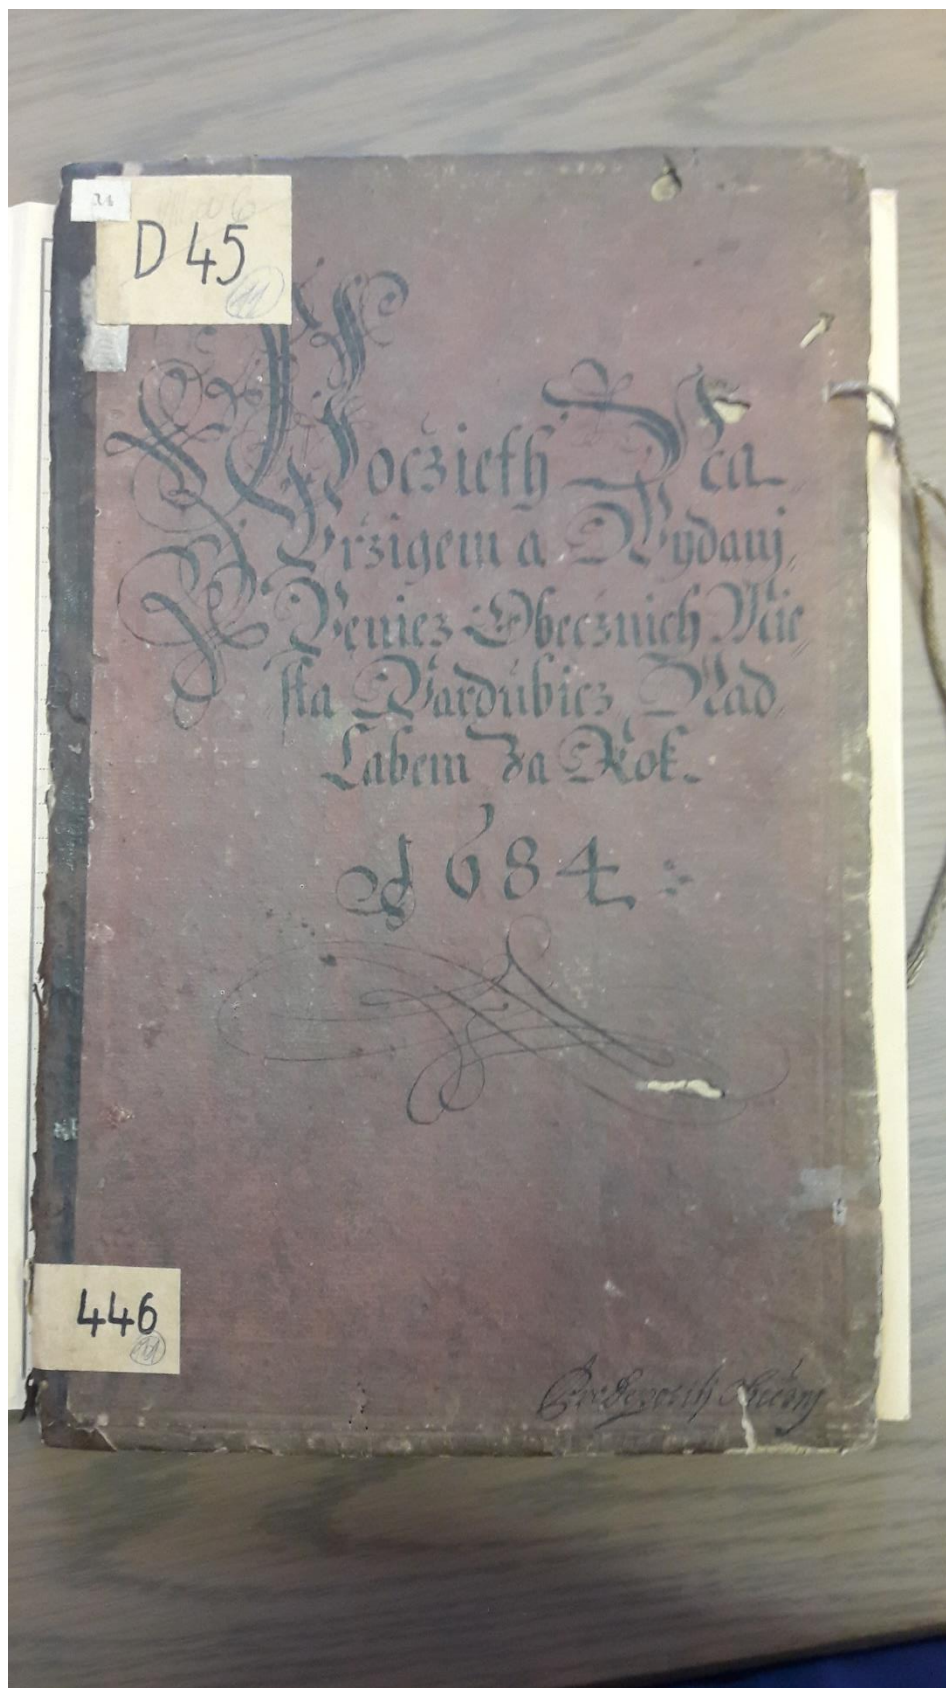 24
D 45
11
Pocżieth Na
Przigem a Wydanj
Peniez Obecżnich Mie,,
sta Pardubicz Nad
Labem Za Rok
1684
446
11